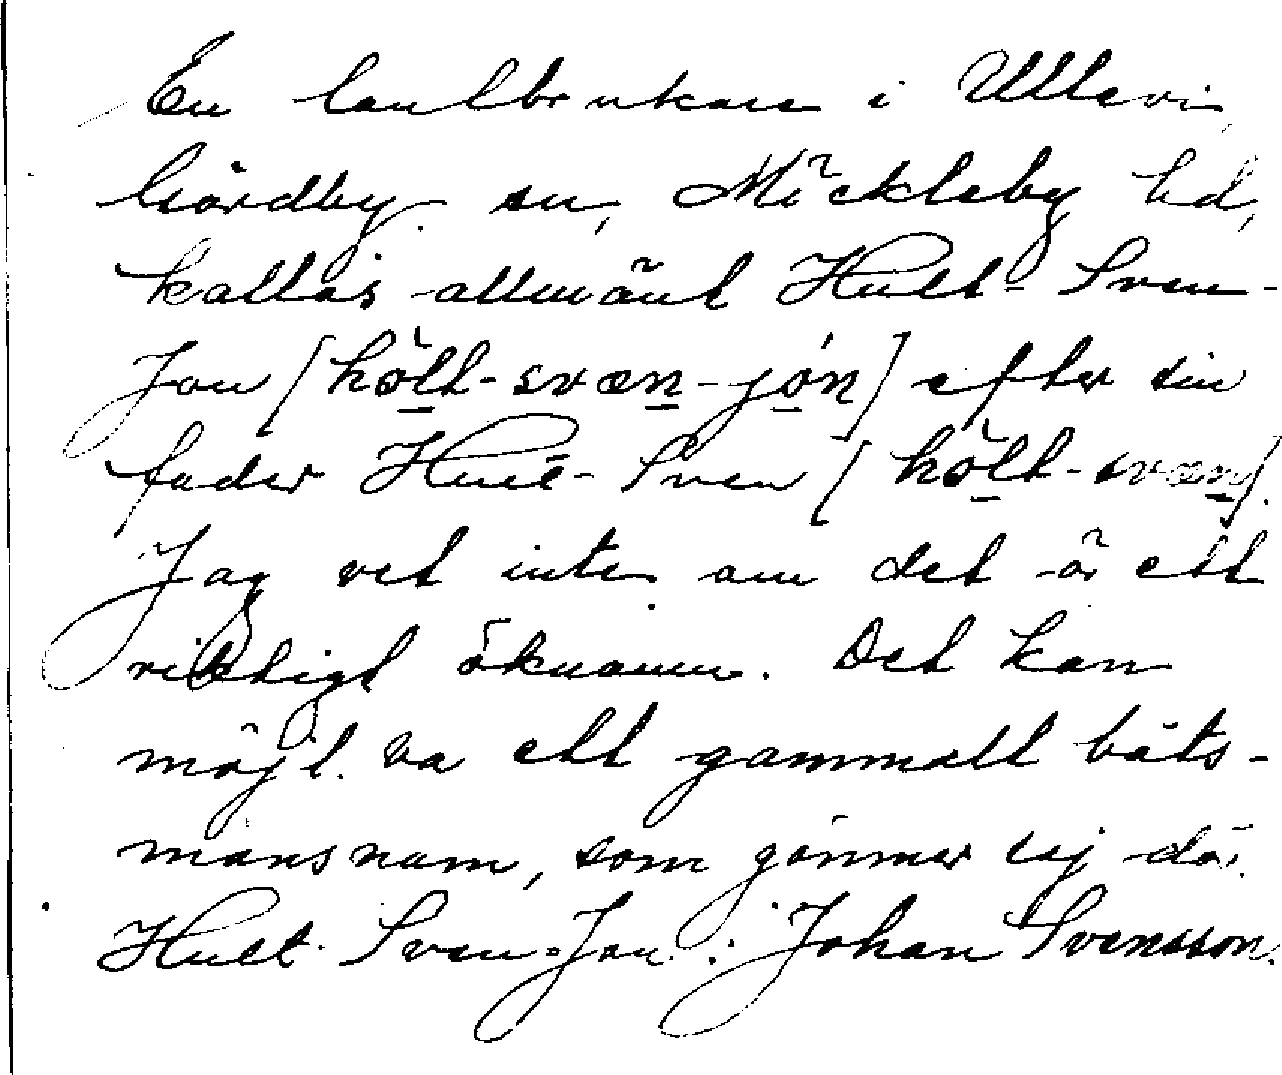 En lantbrukare i Ullevi,
Gårdby sn, Möckleby hd,
kallas allmänt Hult-Sven-
Jon [hòlt-svæn-jón] efter sin
fader Hult-Sven [hòlt-svæn].
Jag vet inte om det är ett
riktigt öknamn. Det kan
möjl. va ett gammalt båts-
mansnamn, som gömmer sig där.
Hult-Sven-Jon : Johan Svensson.